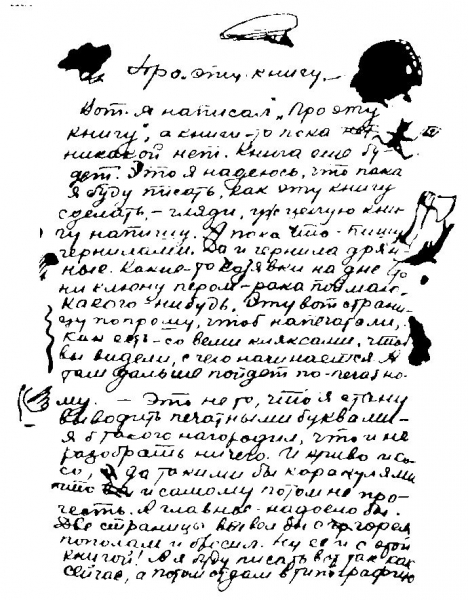 Про эту книгу.
Вот я написал „Про эту
книгу", а книги-то пока
никакой нет. Книга еще бу-
дет. Это я надеюсь, что пока
я буду писать, как эту книгу
сделать, – гляди, уж целую кни-
гу напишу. А пока что - пишу
чернилами. Да и чернила дрян-
ные. Какие-то козявки на дне
ни клюну пером - рака поймаю
какого-нибудь. Эту вот страни-
цу попрошу, чтоб напечатали,
как есть - со всеми кляксами, чтоб
вы видели, с чего начинается. А
там дальше пойдет по-печатно-
му. – Это не то, что я стану
выводить печатными буквами -
я б такого нагородил, что и не
разобрать ничего. И криво и ко-
со, да такими бы каракулями
что и самому потом не про-
честь. А главное - надоело бы.
Две страницы вывел бы с горем
пополам и бросил. Ну ее и с этой
книгой! А я буду писать вот так как
сейчас, а потом отдам в типографию